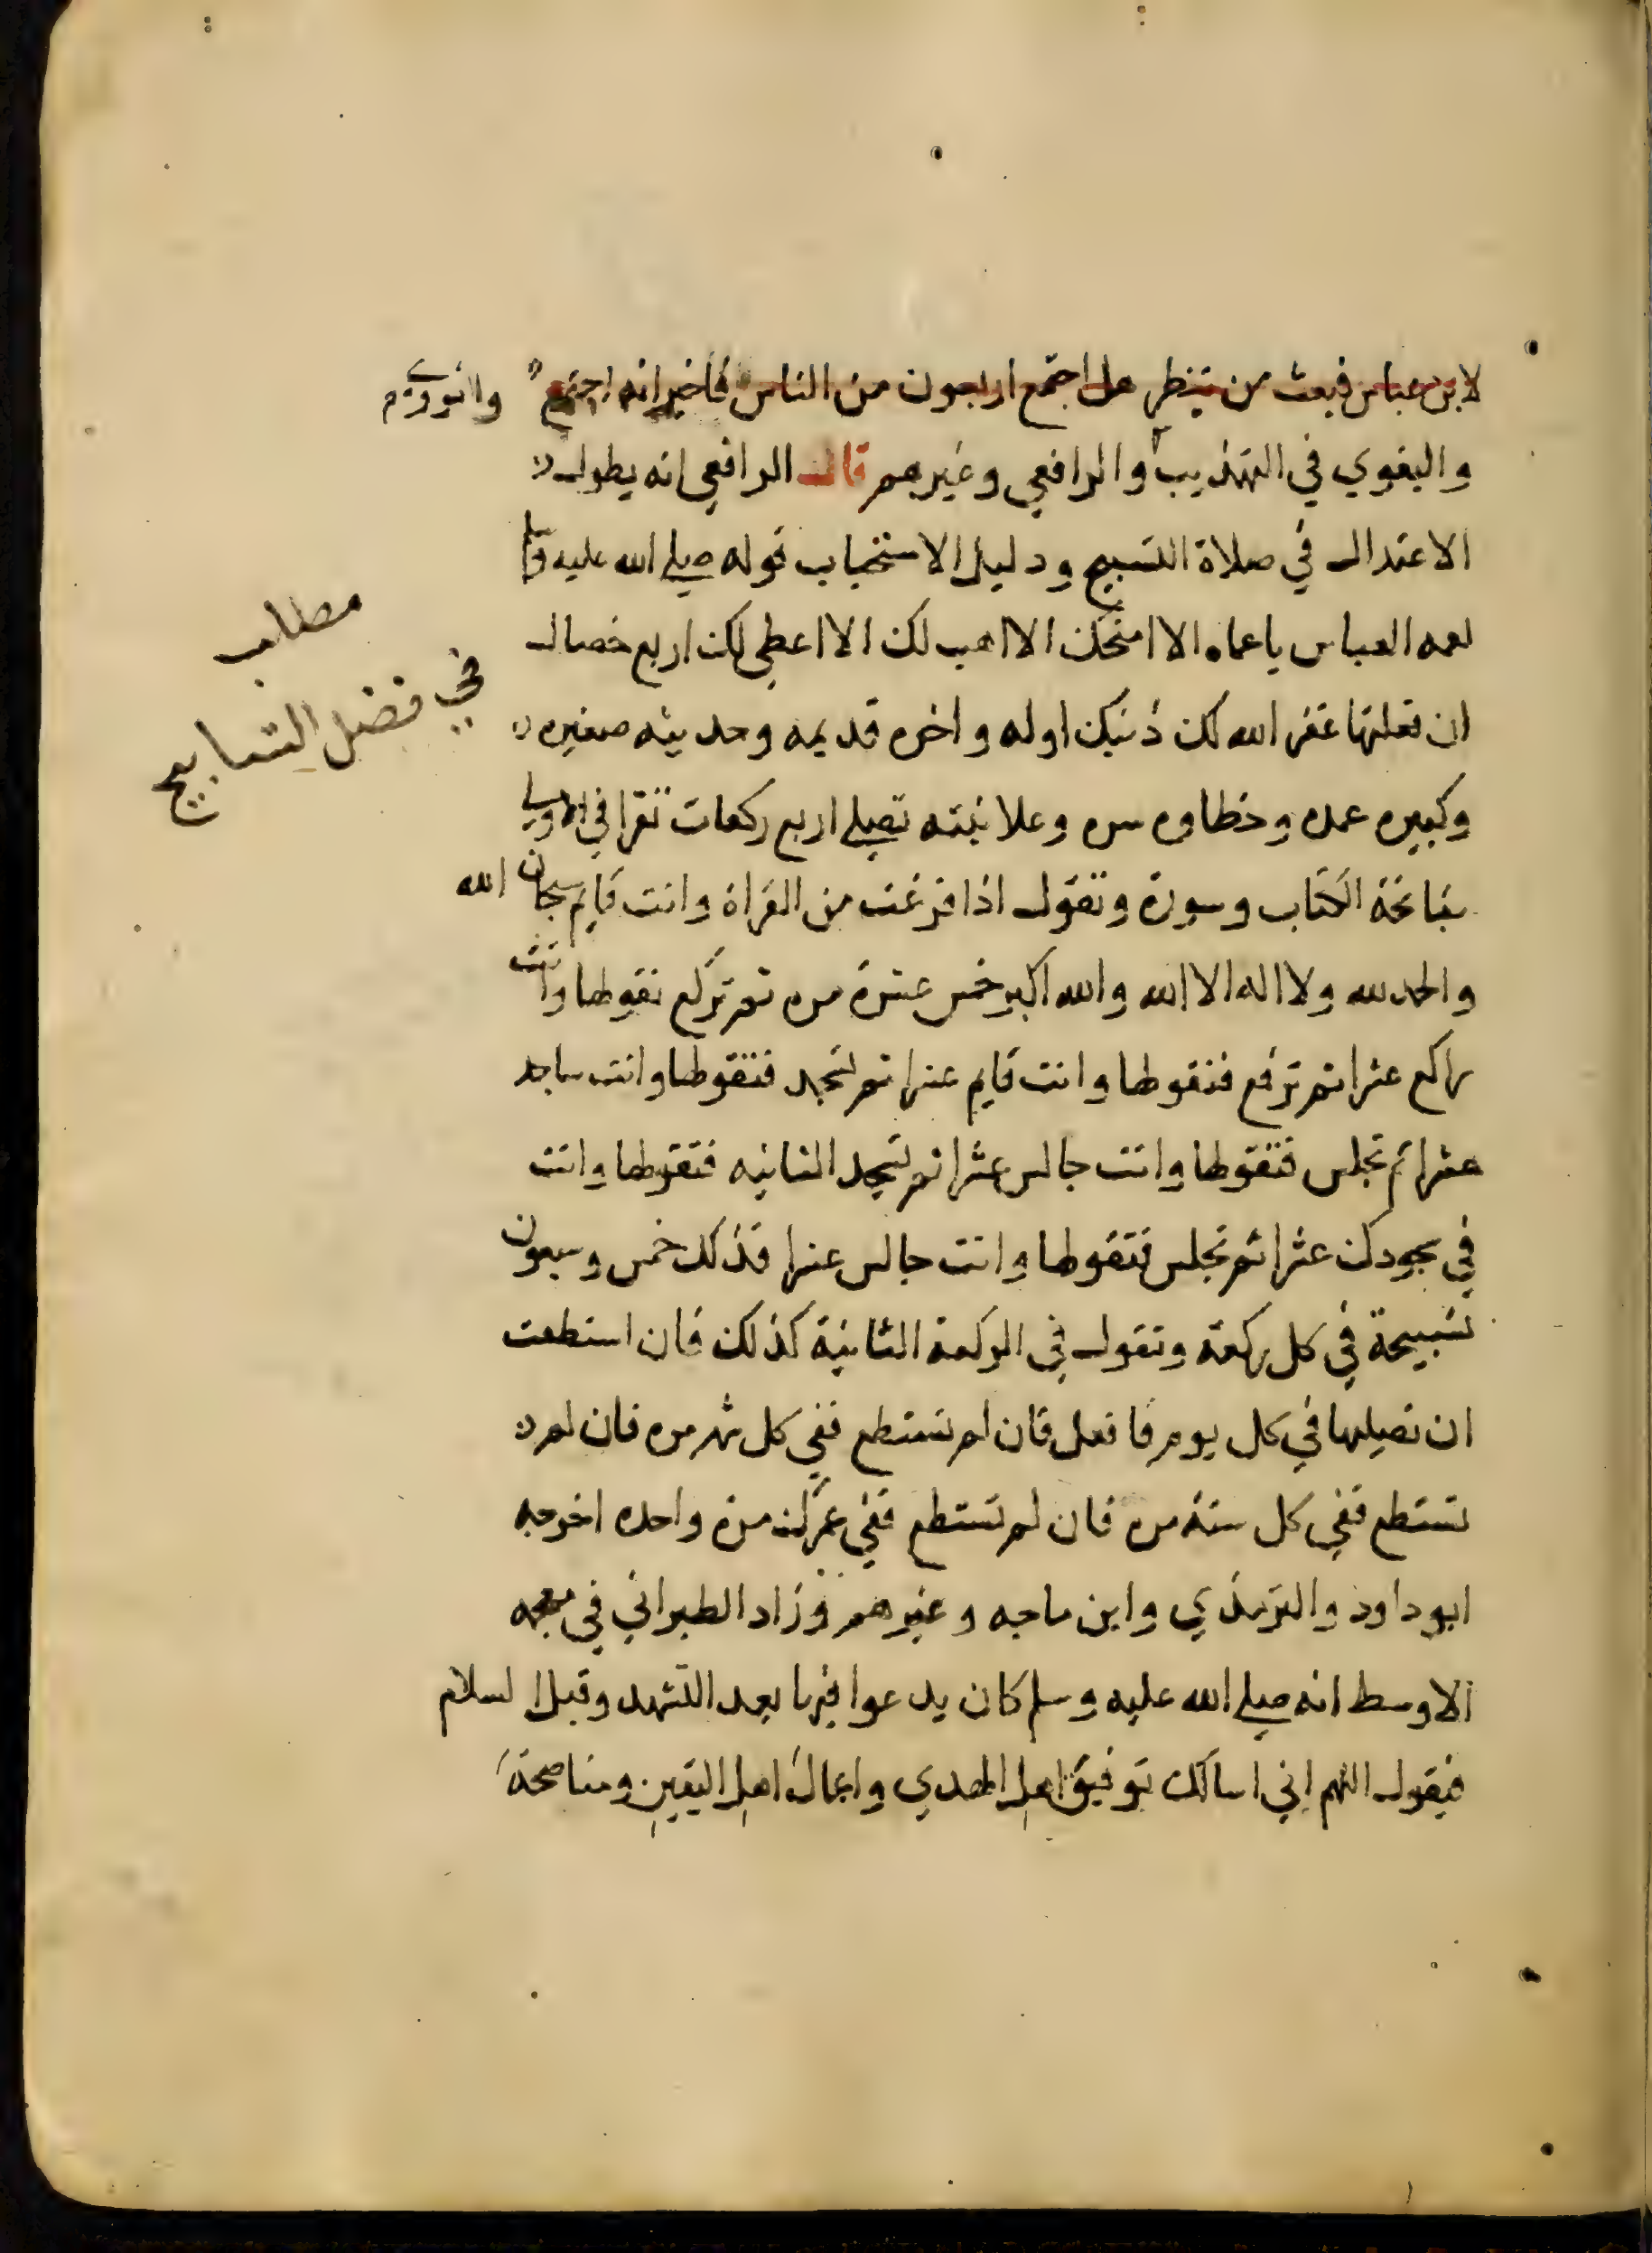 لابن عباس فبعث من ينظر هل اجتمع اربعون من الناس فاخبرانه اجتمع
والبغوي في التهذيب والرافعي وغيرهم قال الرافعي انه يطول
الاعتدال في صلاة التسبيح ودليل الاستحباب قوله صلي الله عليه وسلم
لعمه العباس ياعماه الا امنحك الا اهب لك الا اعطي لك اربع خصال
ان فعلتها غفر الله لك ذنبك اوله واخره قديمه وحديثه صغيره
وكبيره عمده وخطاوه سره وعلانيته تصلي اربع ركعات تقرا في الاولي
بفاتحة الكتاب وسورة وتقول اذا فرغت من القراة وانت قايم سبحان الله
والحمد لله ولا اله الا الله والله اكبر خمس عشرة مره ثم تركع تقولها وانت
راكع عشرا ثم ترفع فتقولها وانت قايم عشرا ثم تسجد فتقولها وانت ساجد
عشرا ثم تجلس فتقولها وانت جالس عشرا ثم تسجد الثانيه فتقولها وانت
في سجودك عشرا ثم تجلس فتقولها وانت جالس عشرا فذلك خمس وسبعون
تسبيحة في كل ركعة وتقول في الركعة الثانية كذلك فان استطعت
ان تصليها في كل يوم فافعل فان لم تستطع ففي كل شهر مره فان لم
تستطع ففي كل سنة مره فان لم تستطع ففي عمرك مرة واحده اخرجه
ابو داود والترمذي وابن ماجه وغيرهم وزاد الطبراني في معجمه
الاوسط انه صلي الله عليه وسلم كان يدعوا فيها بعد التشهد وقبل السلام
فيقول اللهم اني اسالك توفيق اهل الهدي واعمال اهل اليقين ومناصحة
مطلب
في فضل التسابيح